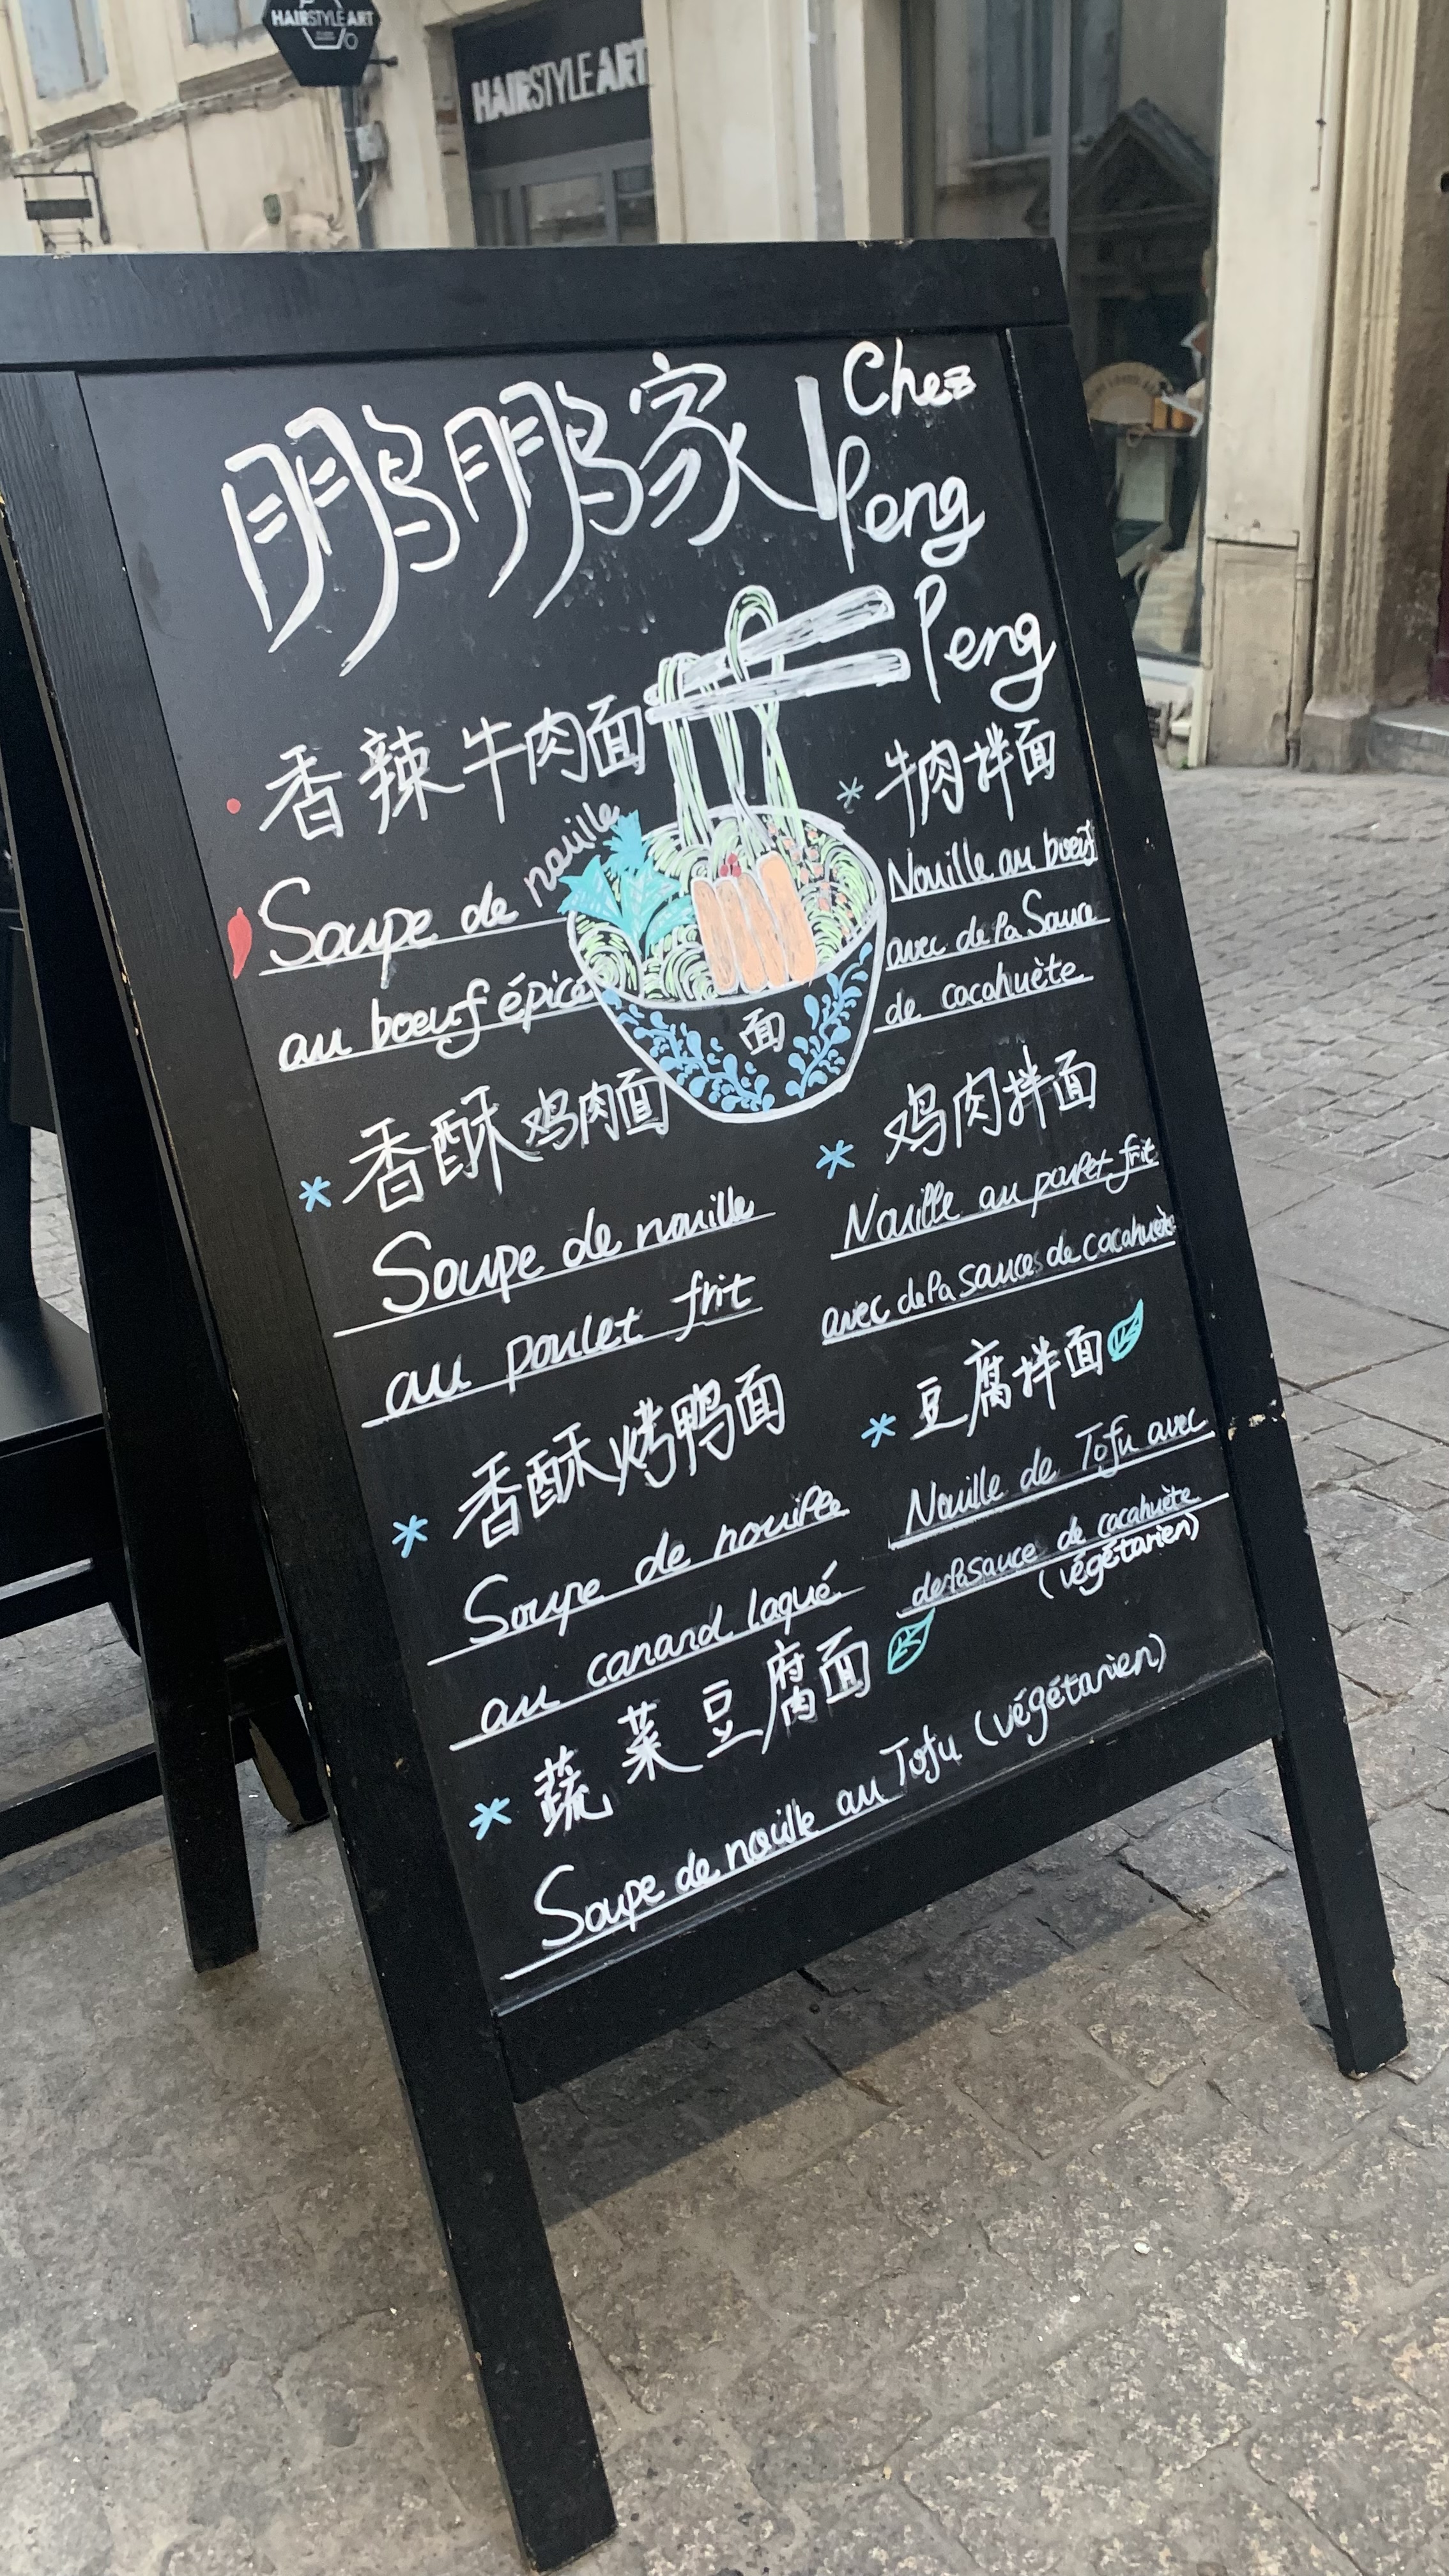 HAIRSTYLE ART
HAIRSTYLE ART
鹏鹏家
Chez
Peng
Peng
香辣牛肉面
Soupe de nouille
au boeuf épicé
香酥鸡肉面
Soupe de nouille
au poulet frit
香酥烤鸭面
Soupe de nouille
au canard laqué
蔬菜豆腐面
Soupe de nouille au Tofu (végétarien)
面
牛肉拌面
Nouille au boeuf
avec de la Sauce
de cacahuète
鸡肉拌面
Nouille au poulet frit
avec de la sauces de cacahuète
豆腐拌面
Nouille de Tofu avec
de la sauces de cacahuète
(végétarien)